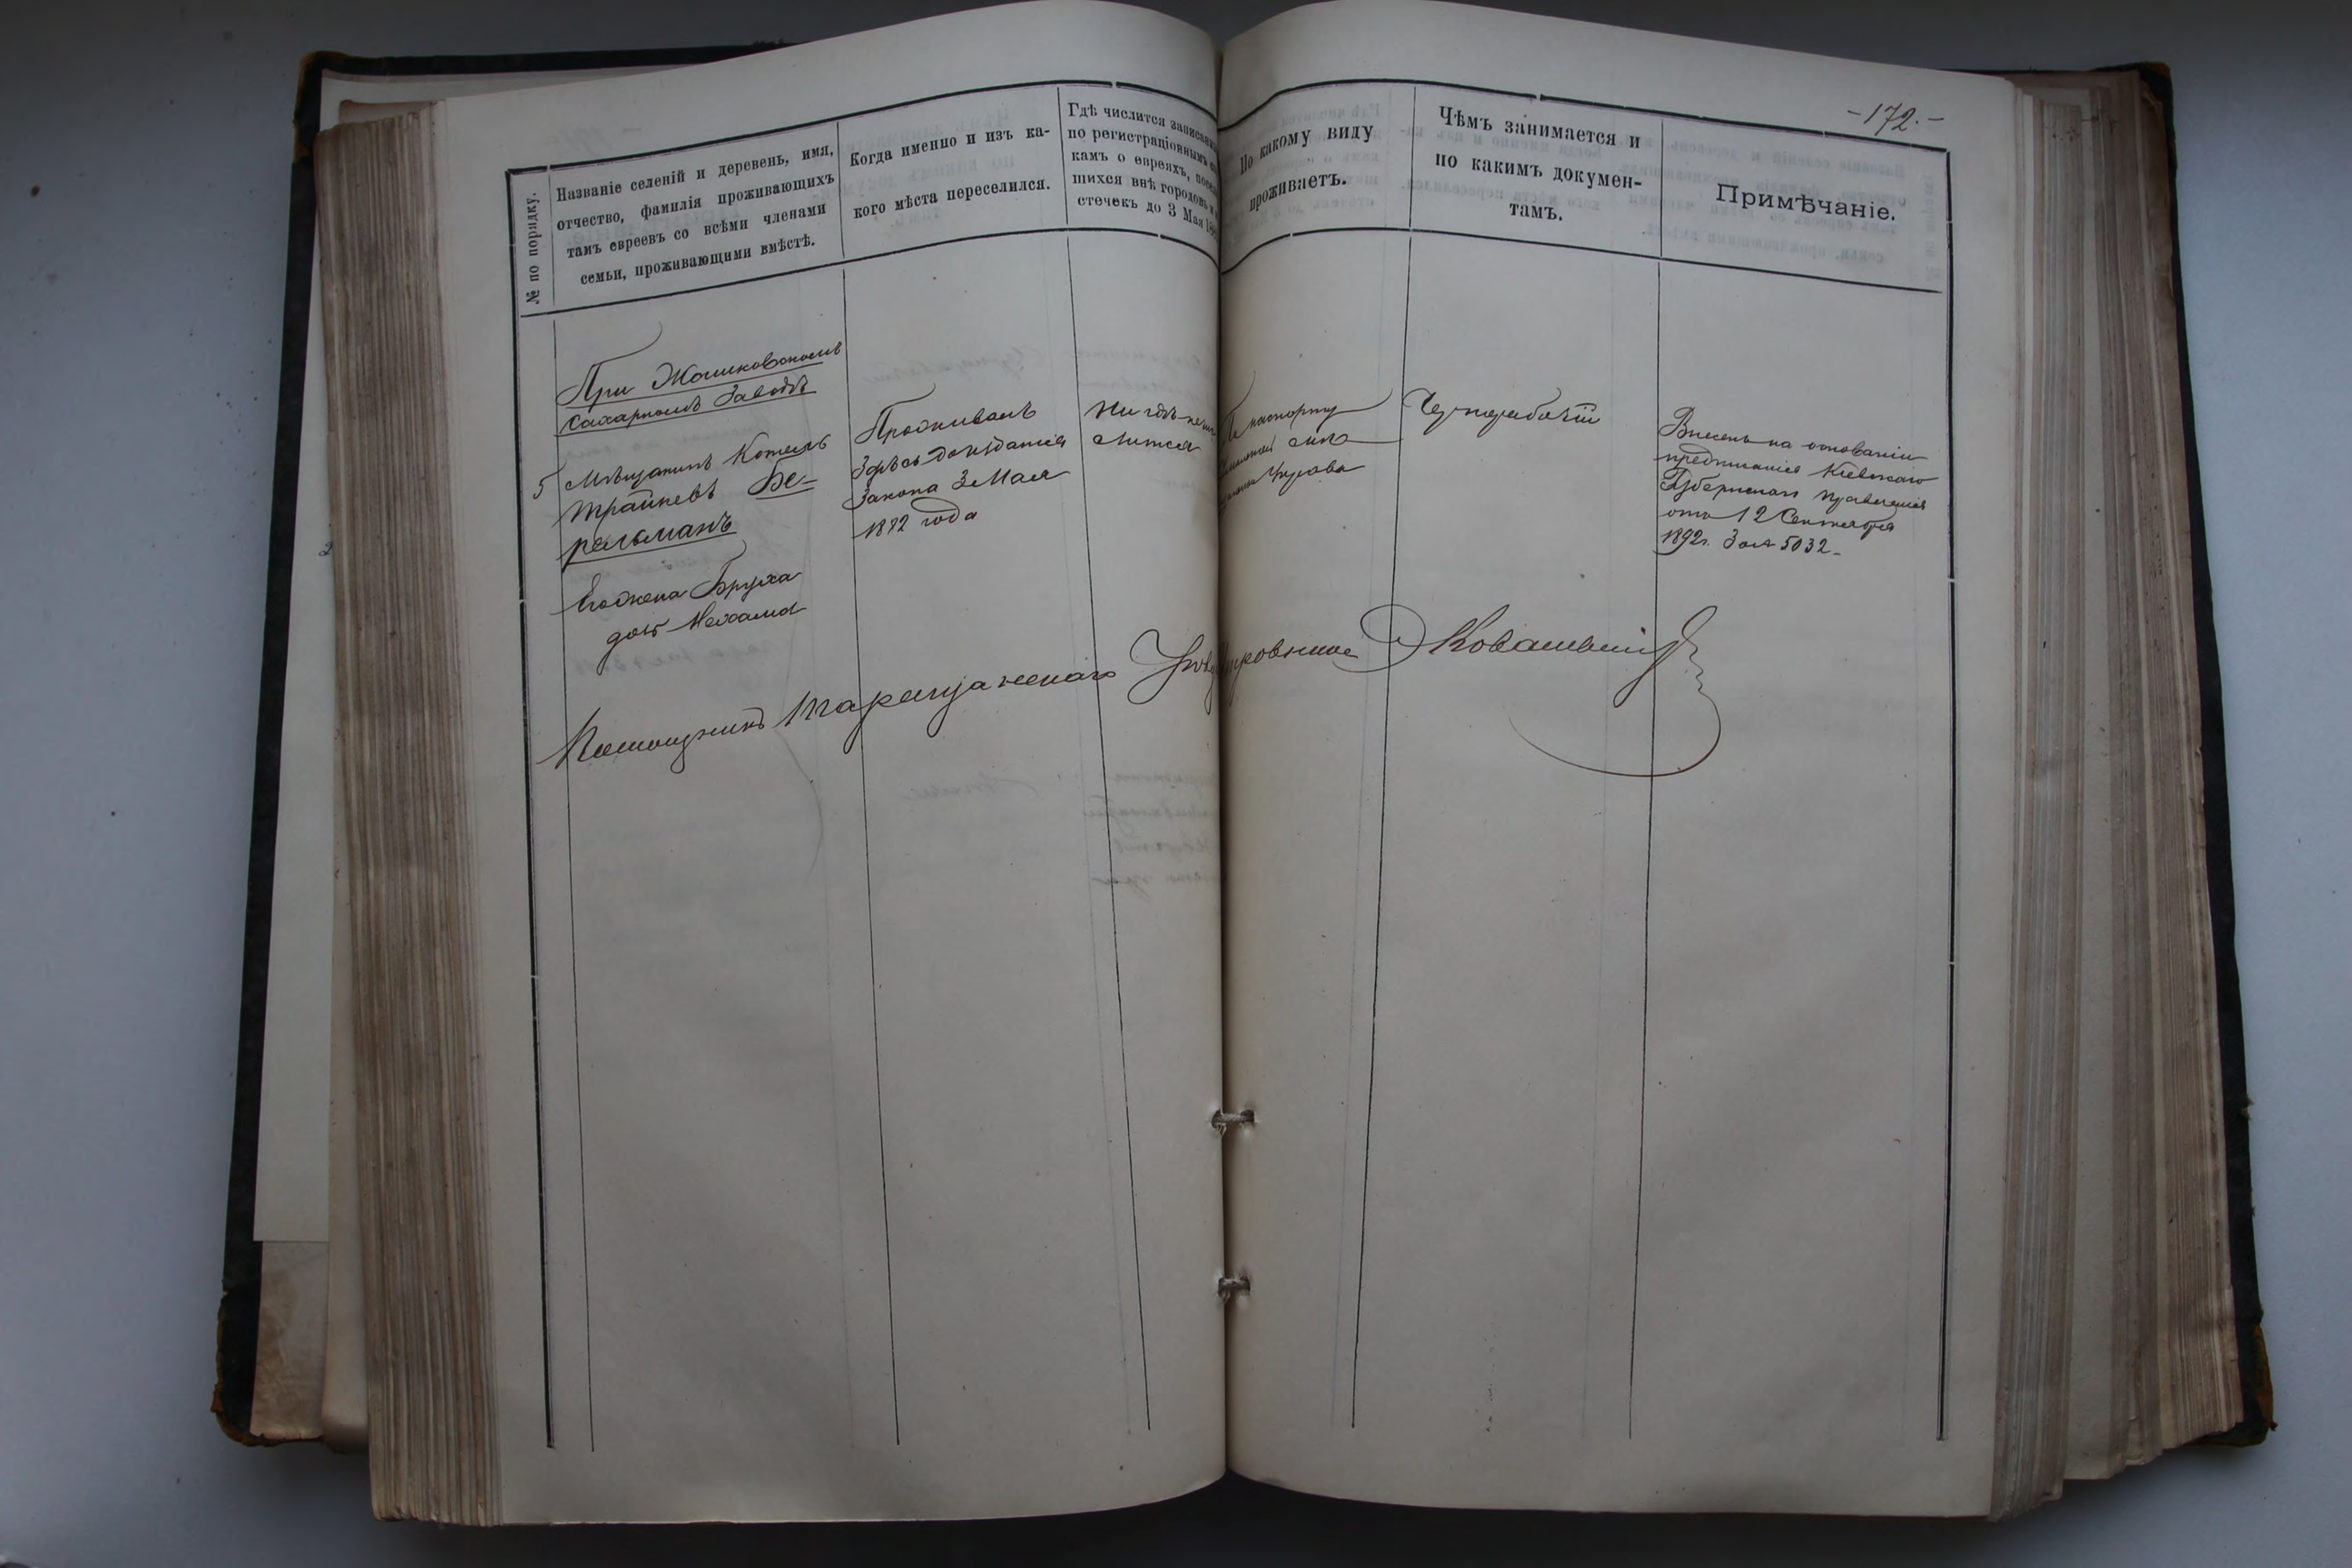 -172.-
№ по порядку.
Названіе селеній и деревень, имя,
отчество, фамилія проживающихъ
тамъ евреевъ со всѣми членами
семьи, проживающими вмѣстѣ.
Когда именно и изъ ка-
кого мѣста переселился.
Гдѣ числится
по регистраціоннымъ
камъ о евреяхъ,
шихся внѣ городовъ
стечекъ до 3 Мая
По какому виду
проживаетъ.
Чѣмъ занимается и
по какимъ докумен-
тамъ.
Примѣчаніе.
При Жашковскомъ
Сахарномъ Заводѣ
5 Мѣщанинъ
Бе-
рельманъ
Его жена Бруха
Проживалъ
Здѣсь до изданія
Закона 3 Мая
1882 года
Ни гдѣ не
слится
По паспорту
Чернорабочій
Внесенъ на основаніи
предписанія Кіевскаго
Губернскаго Правленія
отъ 12 Сентября
1892 г. За № 5032
Помощникъ Таращанскаго